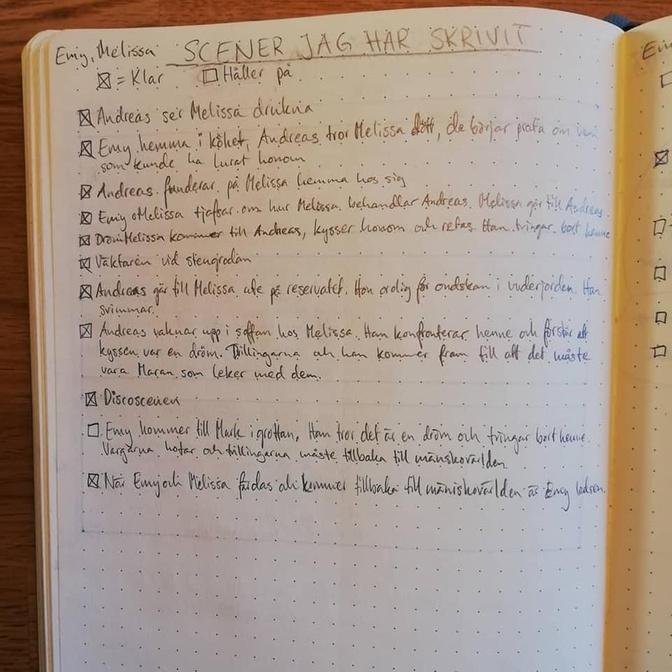 Emy, Melissa SCENER JAG HAR SKRIVIT
☒ = Klar ☐ Håller på
☒ Andreas ser Melissa drukna
☒ Emy hemma i köket, Andreas tror Melissa dött, de börjar prata om vem
som kunde ha lurat honom
☒ Andreas funderar på Melissa hemma hos sig
☒ Emy o Melissa tjafsar om hur Melissa behandlar Andreas. Melissa går till Andreas
☒ Melissa kommer till Andreas, kysser honom och retas. Han tvingar bort henne
☒ Väktaren vid stengrodan
☒ Andreas går till Melissa ute på reservatet. Hon orolig för ondskan i underjorden. Han
svimmar.
☒ Andreas vaknar upp i soffan hos Melissa. Han konfronterar henne och förstår att
kyssen var en dröm. Tvillingarna och han kommer fram till att det måste
vara Maran som leker med dem.
☒ Discoscenen
☐ Emy kommer till Mark i grottan, Han tror det är en dröm och tvingar bort henne.
Vargarna hotar och tvillingarna måste tillbaka till människovärlden
☒ När Emy och Melissa färdas och kommer tillbaka till människovärlden är Emy ledsen.
Em